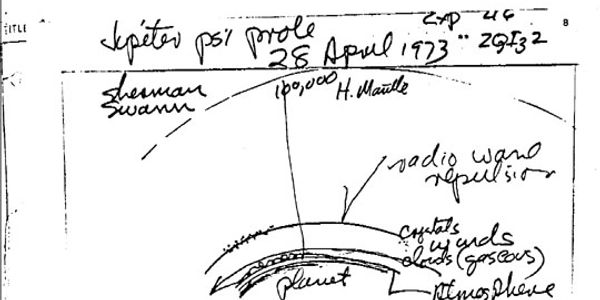 TITLE
8
Jupiter psi probe
28 April 1973
Sherman
Swann
100,000 H. Mantle
radio wave
repulsion
crystals
winds
clouds (gaseous)
planet
Atmosphere